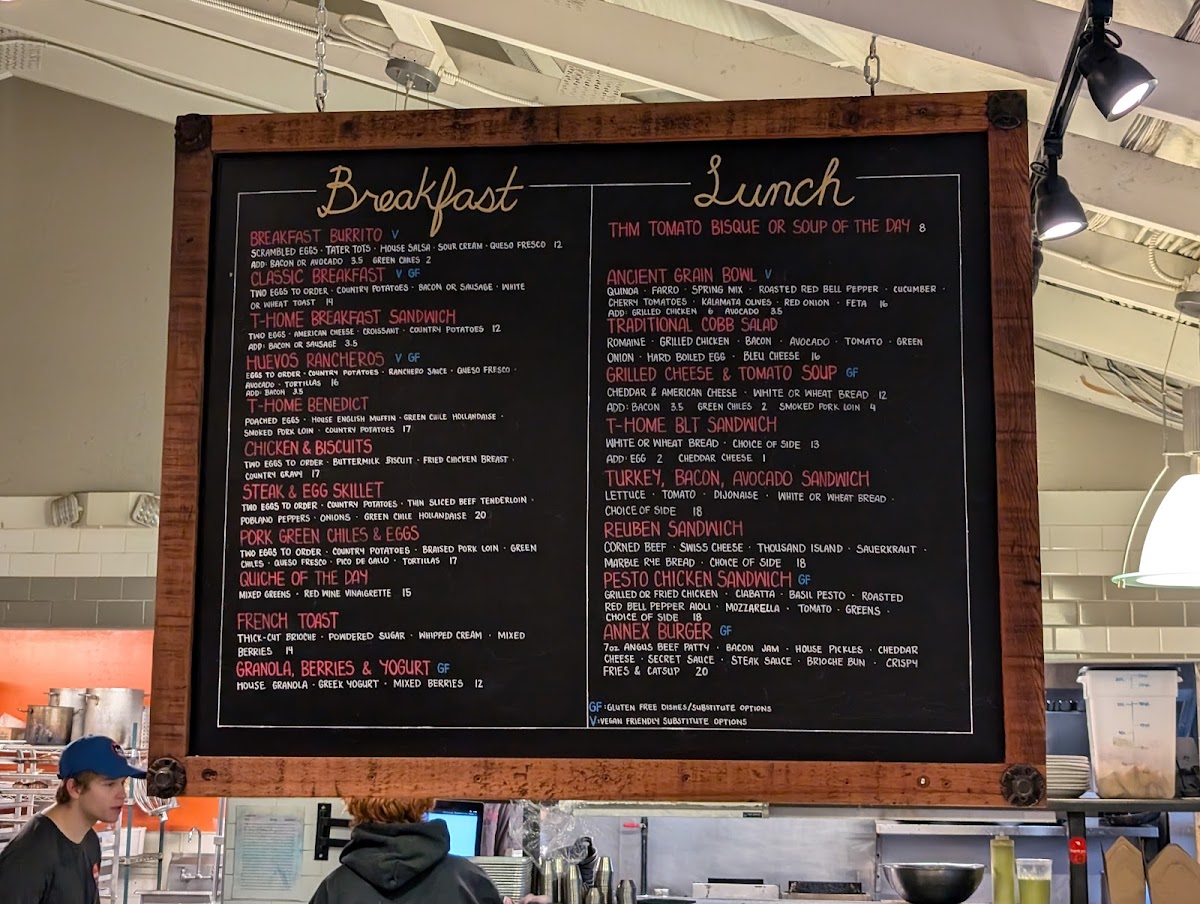 Breakfast
BREAKFAST BURRITO V
SCRAMBLED EGGS · TATER TOTS · HOUSE SALSA · SOUR CREAM · QUESO FRESCO 12
ADD: BACON OR AVOCADO 3.5 GREEN CHILES 2
CLASSIC BREAKFAST V GF
TWO EGGS TO ORDER · COUNTRY POTATOES · BACON OR SAUSAGE · WHITE
OR WHEAT TOAST 14
T-HOME BREAKFAST SANDWICH
TWO EGGS · AMERICAN CHEESE · CROISSANT · COUNTRY POTATOES 12
ADD: BACON OR SAUSAGE 3.5
HUEVOS RANCHEROS V GF
EGGS TO ORDER · COUNTRY POTATOES · RANCHERO SAUCE · QUESO FRESCO ·
AVOCADO · TORTILLAS 16
ADD: BACON 3.5
T-HOME BENEDICT
POACHED EGGS · HOUSE ENGLISH MUFFIN · GREEN CHILE HOLLANDAISE ·
SMOKED PORK LOIN · COUNTRY POTATOES 17
CHICKEN & BISCUITS
TWO EGGS TO ORDER · BUTTERMILK BISCUIT · FRIED CHICKEN BREAST ·
COUNTRY GRAVY 17
STEAK & EGG SKILLET
TWO EGGS TO ORDER · COUNTRY POTATOES · THIN SLICED BEEF TENDERLOIN ·
POBLANO PEPPERS · ONIONS · GREEN CHILE HOLLANDAISE 20
PORK GREEN CHILES & EGGS
TWO EGGS TO ORDER · COUNTRY POTATOES · BRAISED PORK LOIN · GREEN
CHILES · QUESO FRESCO · PICO DE GALLO · TORTILLAS 17
QUICHE OF THE DAY
MIXED GREENS · RED WINE VINAIGRETTE 15
FRENCH TOAST
THICK-CUT BRIOCHE · POWDERED SUGAR · WHIPPED CREAM · MIXED
BERRIES 14
GRANOLA, BERRIES & YOGURT GF
HOUSE GRANOLA · GREEK YOGURT · MIXED BERRIES 12
Lunch
THM TOMATO BISQUE OR SOUP OF THE DAY 8
ANCIENT GRAIN BOWL V
QUINOA · FARRO · SPRING MIX · ROASTED RED BELL PEPPER · CUCUMBER ·
CHERRY TOMATOES · KALAMATA OLIVES · RED ONION · FETA 16
ADD: GRILLED CHICKEN 6 AVOCADO 3.5
TRADITIONAL COBB SALAD
ROMAINE · GRILLED CHICKEN · BACON · AVOCADO · TOMATO · GREEN
ONION · HARD BOILED EGG · BLEU CHEESE 16
GRILLED CHEESE & TOMATO SOUP GF
CHEDDAR & AMERICAN CHEESE · WHITE OR WHEAT BREAD 12
ADD: BACON 3.5 GREEN CHILES 2 SMOKED PORK LOIN 4
T-HOME BLT SANDWICH
WHITE OR WHEAT BREAD · CHOICE OF SIDE 13
ADD: EGG 2 CHEDDAR CHEESE 1
TURKEY, BACON, AVOCADO SANDWICH
LETTUCE · TOMATO · DIJONAISE · WHITE OR WHEAT BREAD ·
CHOICE OF SIDE 18
REUBEN SANDWICH
CORNED BEEF · SWISS CHEESE · THOUSAND ISLAND · SAUERKRAUT ·
MARBLE RYE BREAD · CHOICE OF SIDE 18
PESTO CHICKEN SANDWICH GF
GRILLED OR FRIED CHICKEN · CIABATTA · BASIL PESTO · ROASTED
RED BELL PEPPER AIOLI · MOZZARELLA · TOMATO · GREENS ·
CHOICE OF SIDE 18
ANNEX BURGER GF
7oz ANGUS BEEF PATTY · BACON JAM · HOUSE PICKLES · CHEDDAR
CHEESE · SECRET SAUCE · STEAK SAUCE · BRIOCHE BUN · CRISPY
FRIES & CATSUP 20
GF: GLUTEN FREE DISHES/SUBSTITUTE OPTIONS
V: VEGAN FRIENDLY SUBSTITUTE OPTIONS